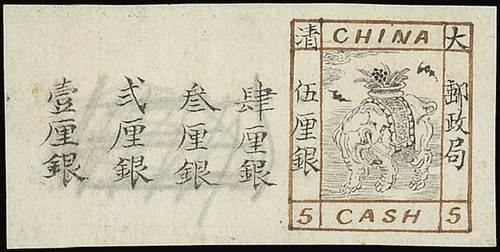 大 CHINA 清
郵政局
伍厘銀
5 CASH 5
肆厘銀
叁厘銀
弍厘銀
壹厘銀